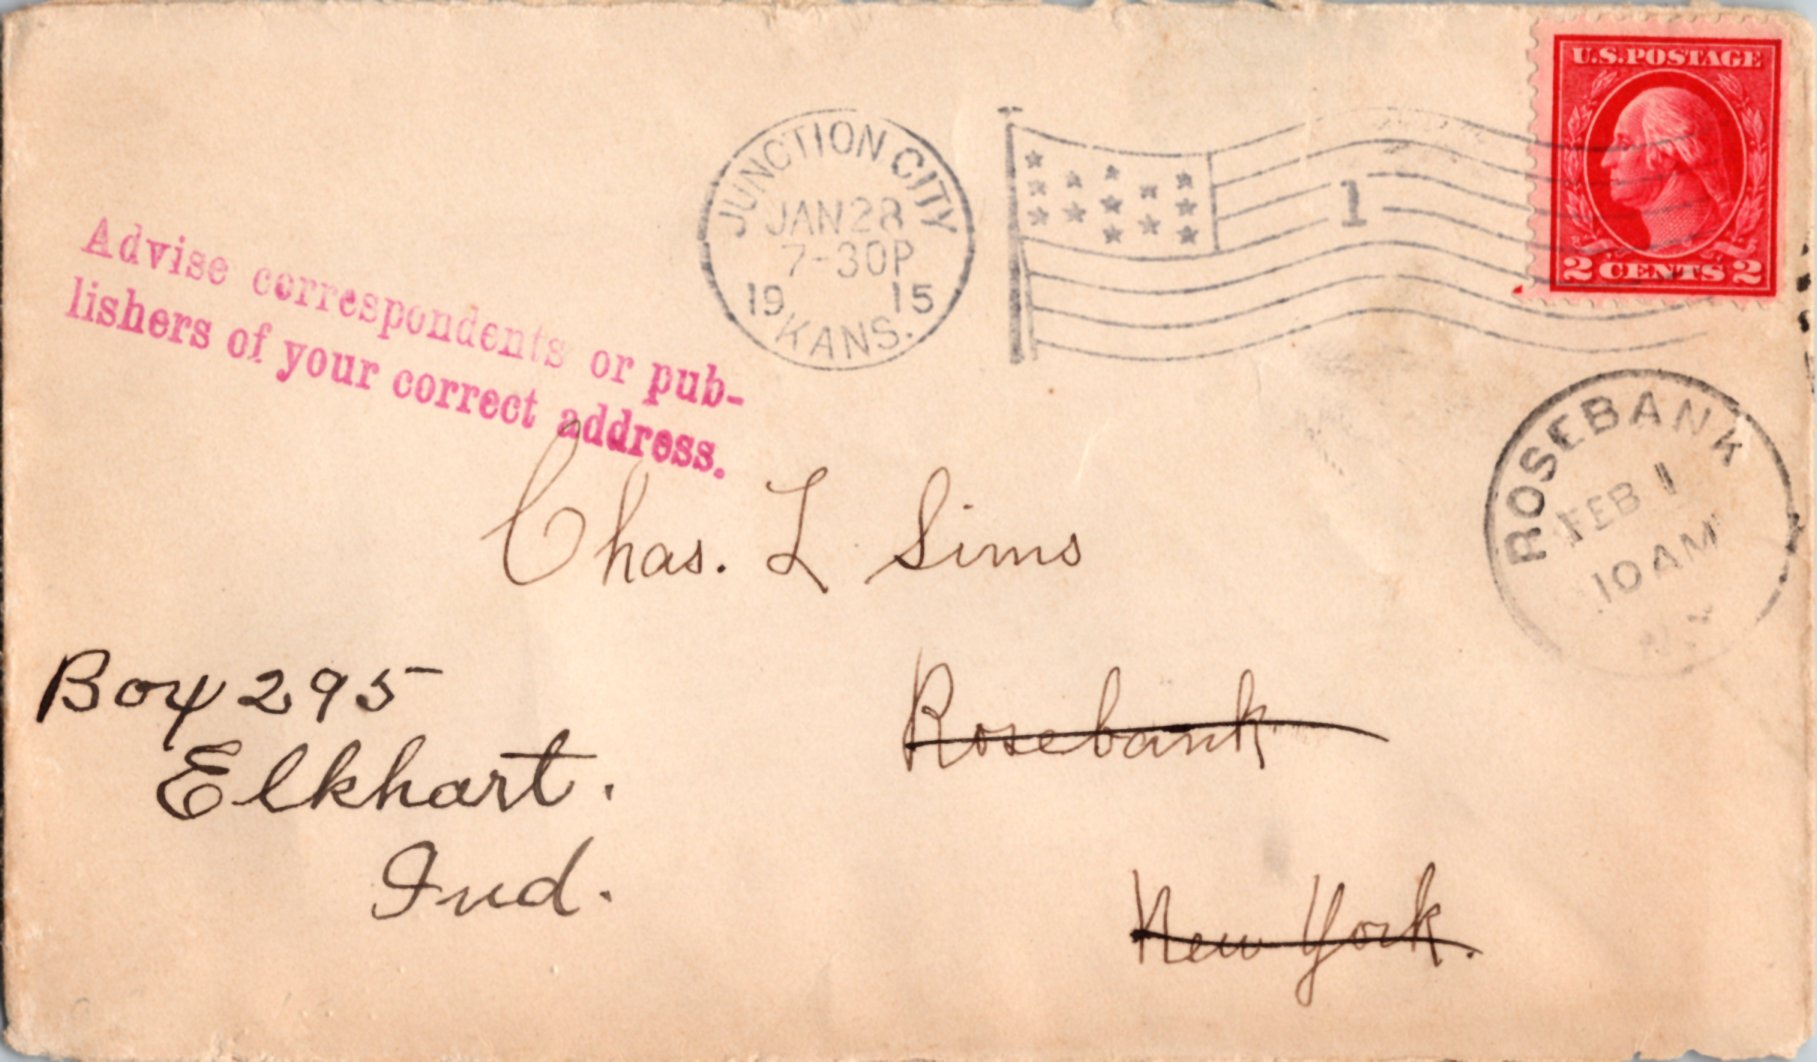 U.S.POSTAGE
2 CENTS 2
JUNCTION CITY
JAN 28
7-30P
19 15
KANS.
1
Advise correspondents or pub-
lishers of your correct address.
ROSEBANK
FEB 1
10 AM
N.Y.
Chas. L Sims
Rosebank
New York.
Box 295
Elkhart.
Ind.